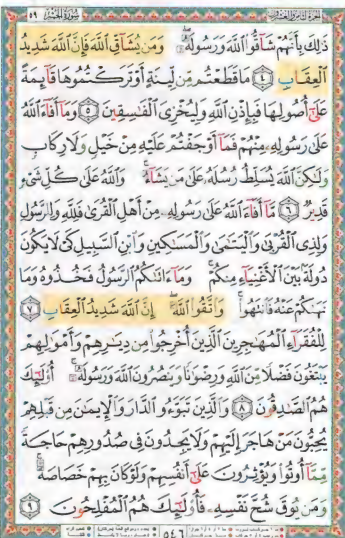 الجزء الثامن والعشرون سورة الحشر ٥٩
ذَٰلِكَ بِأَنَّهُمْ شَاقُّوا۟ ٱللَّهَ وَرَسُولَهُۥ ۖ وَمَن يُشَآقِّ ٱللَّهَ فَإِنَّ ٱللَّهَ شَدِيدُ
ٱلْعِقَابِ ٤ مَا قَطَعْتُم مِّن لِّينَةٍ أَوْ تَرَكْتُمُوهَا قَآئِمَةً
عَلَىٰٓ أُصُولِهَا فَبِإِذْنِ ٱللَّهِ وَلِيُخْزِىَ ٱلْفَـٰسِقِينَ ٥ وَمَآ أَفَآءَ ٱللَّهُ
عَلَىٰ رَسُولِهِۦ مِنْهُمْ فَمَآ أَوْجَفْتُمْ عَلَيْهِ مِنْ خَيْلٍ وَلَا رِكَابٍ
وَلَـٰكِنَّ ٱللَّهَ يُسَلِّطُ رُسُلَهُۥ عَلَىٰ مَن يَشَآءُ ۚ وَٱللَّهُ عَلَىٰ كُلِّ شَىْءٍ
قَدِيرٌ ٦ مَّآ أَفَآءَ ٱللَّهُ عَلَىٰ رَسُولِهِۦ مِنْ أَهْلِ ٱلْقُرَىٰ فَلِلَّهِ وَلِلرَّسُولِ
وَلِذِى ٱلْقُرْبَىٰ وَٱلْيَتَـٰمَىٰ وَٱلْمَسَـٰكِينِ وَٱبْنِ ٱلسَّبِيلِ كَىْ لَا يَكُونَ
دُولَةًۢ بَيْنَ ٱلْأَغْنِيَآءِ مِنكُمْ ۚ وَمَآ ءَاتَىٰكُمُ ٱلرَّسُولُ فَخُذُوهُ وَمَا
نَهَىٰكُمْ عَنْهُ فَٱنتَهُوا۟ ۚ وَٱتَّقُوا۟ ٱللَّهَ ۖ إِنَّ ٱللَّهَ شَدِيدُ ٱلْعِقَابِ ٧
لِلْفُقَرَآءِ ٱلْمُهَـٰجِرِينَ ٱلَّذِينَ أُخْرِجُوا۟ مِن دِيَـٰرِهِمْ وَأَمْوَٰلِهِمْ
يَبْتَغُونَ فَضْلًا مِّنَ ٱللَّهِ وَرِضْوَٰنًا وَيَنصُرُونَ ٱللَّهَ وَرَسُولَهُۥٓ ۚ أُو۟لَـٰٓئِكَ
هُمُ ٱلصَّـٰدِقُونَ ٨ وَٱلَّذِينَ تَبَوَّءُو ٱلدَّارَ وَٱلْإِيمَـٰنَ مِن قَبْلِهِمْ
يُحِبُّونَ مَنْ هَاجَرَ إِلَيْهِمْ وَلَا يَجِدُونَ فِى صُدُورِهِمْ حَاجَةً
مِّمَّآ أُوتُوا۟ وَيُؤْثِرُونَ عَلَىٰٓ أَنفُسِهِمْ وَلَوْ كَانَ بِهِمْ خَصَاصَةٌ ۚ
وَمَن يُوقَ شُحَّ نَفْسِهِۦ فَأُو۟لَـٰٓئِكَ هُمُ ٱلْمُفْلِحُونَ ٩
٥٤٦